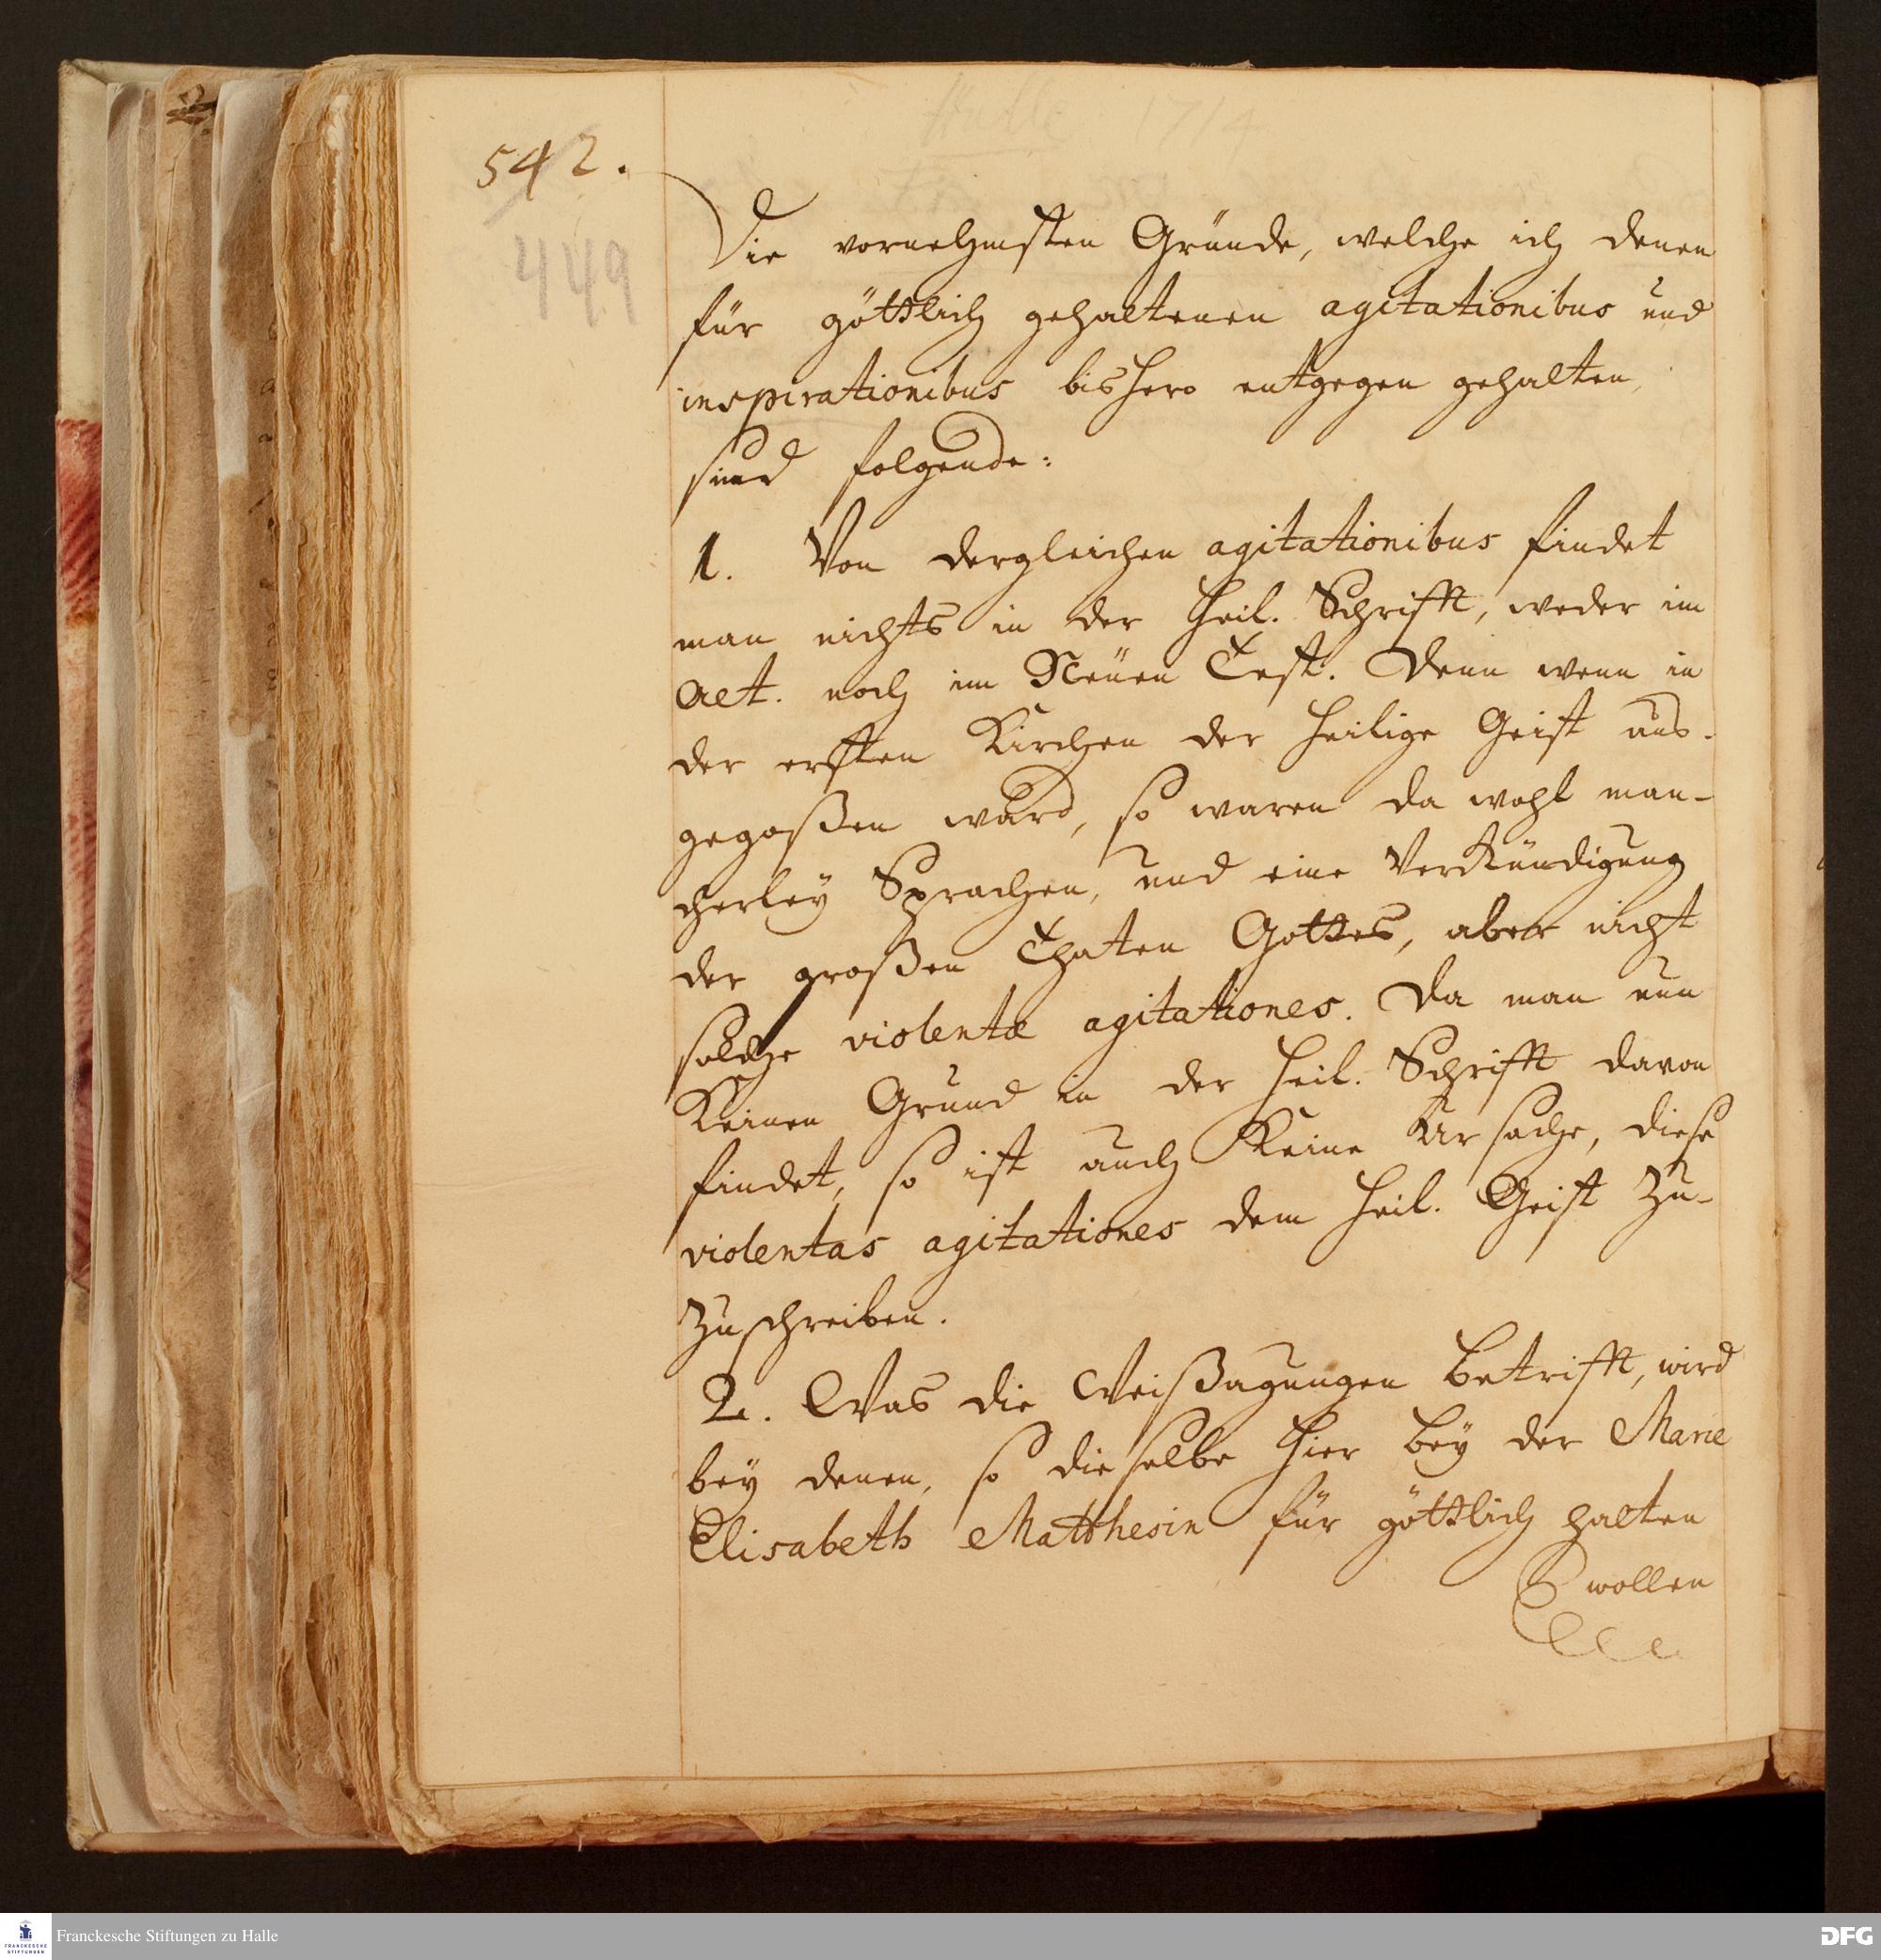 542.
449
Die vornehmsten Gründe, welche ich denen
für göttlich gehaltenen agitationibus und
inspirationibus bishero entgegen gehalten,
sind folgende:
1. Von dergleichen agitationibus findet
man nichts in der Heil. Schrifft, weder im
Alt. noch im Neüen Test. Denn wenn in
der ersten Kirchen der Heilige Geist aus-
gegoßen ward, so waren da wohl man-
cherley Sprachen, und eine Verkündigung
der großen Thaten Gottes, aber nicht
solche violentæ agitationes. Da man nun
keinen Grund in der Heil. Schrifft davon
findet, so ist auch keine Ursache, diese
violentas agitationes dem Heil. Geist zu-
zuschreiben.
2. Was die Weißagungen betrifft, wird
bey denen, so dieselbe hier bey der Marie
Elisabeth Matthesin für göttlich halten
wollen
Franckesche Stiftungen zu Halle
FRANCKESCHE STIFTUNGEN
DFG